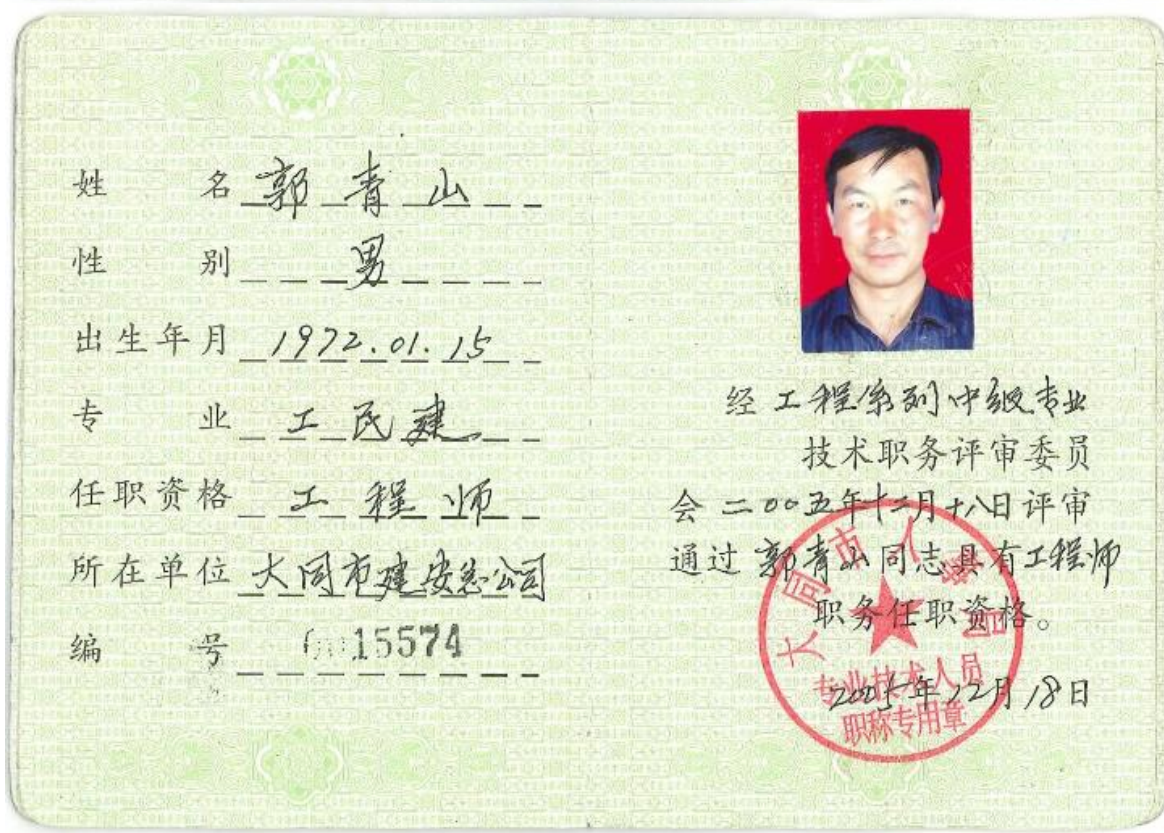 姓名 郭青山
性别 男
出生年月 1972.01.15
专业 工民建
任职资格 工程师
所在单位 大同市建安总公司
编号 15574
经工程系列中级专业
技术职务评审委员
会二00五年十二月十八日评审
通过郭青山同志具有工程师
职务任职资格。
2005年12月18日
大同市人事局
专业技术人员
职称专用章